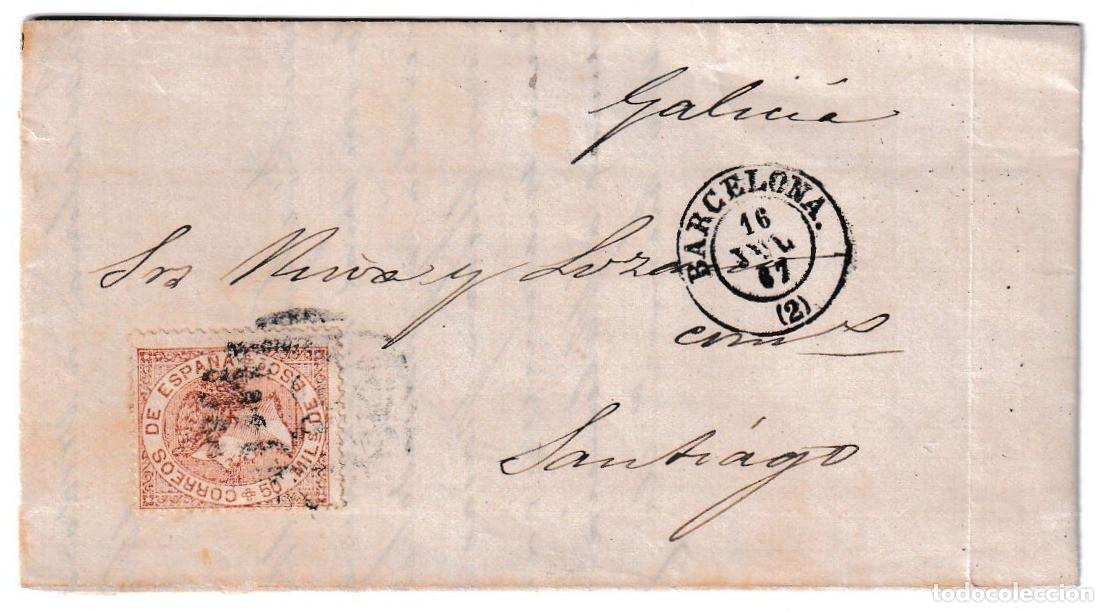 Galicia
BARCELONA.
16
JUL
67
(2)
Srs Riva y Lozano
com
Santiágo
CORREOS DE ESPAÑA
50 MIL S DE ESO
todocoleccion